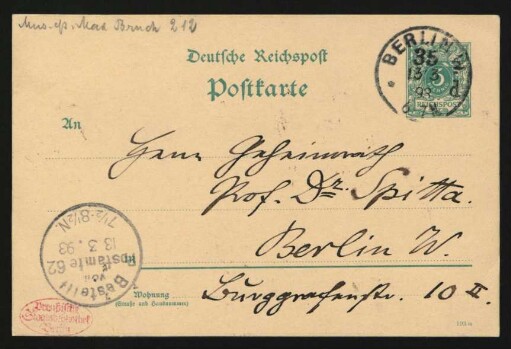 Mus. ep. Max Bruch 212
Deutsche Reichspost
Postkarte
BERLIN W
35
13 3
93
6-7N
d
5
REICHSPOST
An
Herrn Geheimrath
Prof. Dr. Spitta.
Berlin W.
Wohnung
(Straße und Hausnummer)
Burggrafenstr. 10 II.
Bestellt
vom
Postamte 62
13 3. 93
7½-8½N.
Preußische
Staatsbibliothek
Berlin